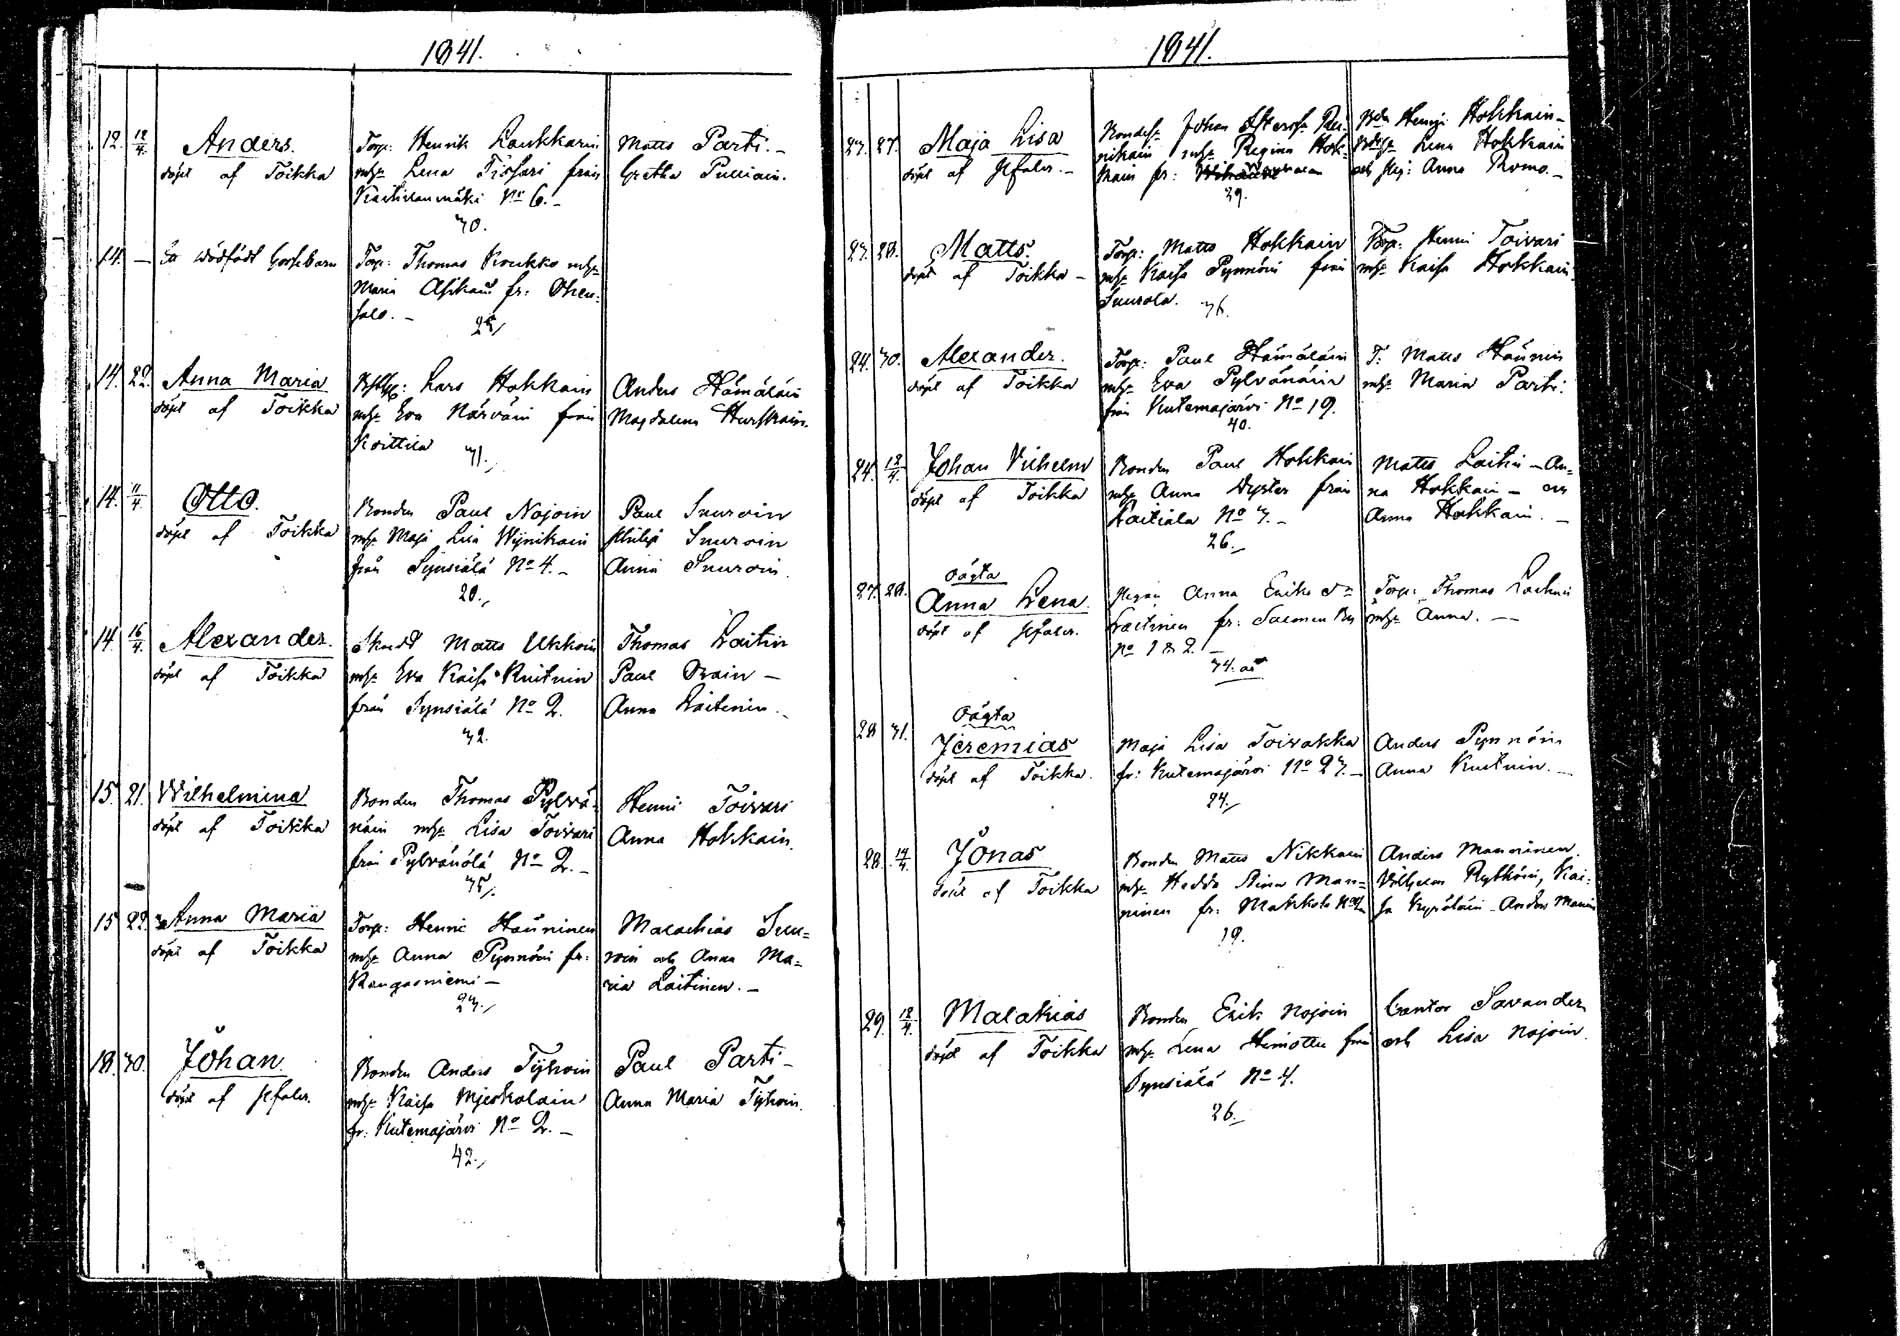 1841.
12. 12/4. Anders.
döpt af Toikka
Torp: Henrik Laukkarin
mh: Lena Tissari från
Kaitilanmäki No 6.
30.
Matts Parti.
Gretha Pulliain.
14. — Ett dödfödt Gossebarn
Torp: Thomas Koukko mh:
Maria Asikain fr:
salo.
25.
14. 22. Anna Maria
döpt af Toikka
Lars Hokkain
mh: Eva Närväin från
Koittila
31.
Anders Hämäläin
Magdalena Hurskain.
14. 11/4. Otto.
döpt af Toikka
Bonden Paul Nojoin
mh: Maja Lisa Wijnikain
från Synsiälä No 4.
20.
Paul Suuroin
Philip Suuroin
Anna Suuroin.
14. 16/4. Alexander.
döpt af Toikka
Matts Ukkoin
mh: Eva Kaisa Kuituin
från Synsiälä No 2.
32.
Thomas Laitin
Paul Orain
Anna Laitinin.
15. 21. Wilhelmina
döpt af Toikka
Bonden Thomas Pylvä-
näin mh: Lisa Toivari
från Pylvänälä No 2.
35.
Henric Toivari
Anna Hokkain.
15 22. Anna Maria
döpt af Toikka
Torp: Henric Häuninen
mh: Anna Pynnöin fr:
Kangasniemi
23.
Malachias Suu-
roin och Anna Ma-
ria Laitinen.
18. 30. Johan.
döpt af
Bonden Anders Tyhoin
mh: Kaisa Mjeskolain
fr: Kutemajärvi No 2.
42.
Paul Parti
Anna Maria Tyhoin.
1841.
23. 27. Maja Lisa
döpt af
Johan
nikain mh: Regina Hok-
kain fr:
29.
Bdn Henric Hokkain
Lena Hokkain
och Anna Romo.
23. 28. Matts.
döpt af Toikka
Torp: Matts Hokkain
mh: Kaisa Pynnöin från
Suurola.
36.
Torp: Henric Toivari
mh: Kaisa Hokkain.
24. 30. Alexander.
döpt af Toikka
Torp: Paul Hämäläin
mh: Eva Pylvänäin
från Kutemajärvi No 19.
40.
T: Matts Häunin
mh: Maria Parti.
24. 12/4. Johan Vilhelm
döpt af Toikka
Bonden Paul Hokkain
mh: Anna Dyster från
Laitiala No 3.
26.
Matts Laitin — An-
na Hokkain — och
Anna Hokkain.
27. 28. Oägta
Anna Lena.
döpt af
Pigan Anna Eriks dr
Laitinen fr: Salmen By
No 1 & 2.
34. år
Torp: Thomas
mh: Anna.
28 31. Oägta
Jeremias
döpt af Toikka.
Maja Lisa Toivakka
fr: Kutemajärvi No 23.
24.
Anders Pynnöin
Anna Kuituin.
28. 14/4. Jonas
döpt af Toikka
Bonden Matts Nikkain
mh: Hedda Stina Man-
ninen fr: Makkola No 2
19.
Anders Manninen.
Vilhelm Rytköin, Kai-
sa Kyröläin — Anders Mannin
29. 12/4. Malakias
döpt af Toikka
Bonden Erik Nojoin
mh: Lena Himottu från
Synsiälä No 4.
26.
Cantor Savander
och Lisa Nojoin.